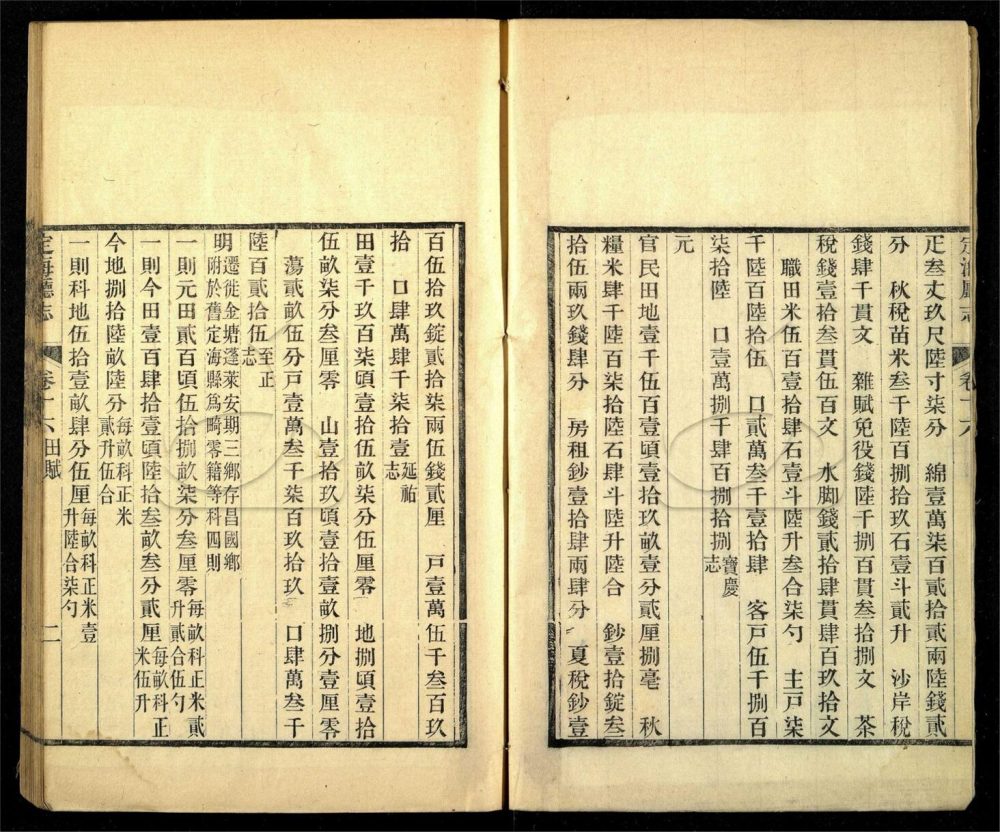 定海廳志 卷十六
疋叁丈玖尺陸寸柒分　綿壹萬柒百貳拾貳兩陸錢貳
分　秋稅苗米叁千陸百捌拾玖石壹斗貳升　沙岸稅
錢肆千貫文　雜賦免役錢陸千捌百貫叁拾捌文　茶
稅錢壹拾叁貫伍百文　水脚錢貳拾肆貫肆百玖拾文
職田米伍百壹拾肆石壹斗陸升叁合柒勺　主戸柒
千陸百陸拾伍　口貳萬叁千壹拾肆　客戸伍千捌百
柒拾陸　口壹萬捌千肆百捌拾捌寶慶志
元
官民田地壹千伍百壹頃壹拾玖畝壹分貳厘捌毫　秋
糧米肆千陸百柒拾陸石肆斗陸升陸合　鈔壹拾錠叁
拾伍兩玖錢肆分　房租鈔壹拾肆兩肆分　夏稅鈔壹
百伍拾玖錠貳拾柒兩伍錢貳厘　戸壹萬伍千叁百玖
拾　口肆萬肆千柒拾壹延祐志
田壹千玖百柒頃壹拾伍畝柒分伍厘零　地捌頃壹拾
伍畝柒分叁厘零　山壹拾玖頃壹拾壹畝捌分壹厘零
蕩貳畝伍分戸壹萬叁千柒百玖拾玖　口肆萬叁千
陸百貳拾伍至正志
明遷徙金塘蓬萊安期三鄉存昌國鄉附於舊定海縣爲畸零籍等科四則
一則元田貳百頃伍拾捌畝柒分叁厘零每畝科正米貳升貳合伍勺
一則今田壹百肆拾壹頃陸拾叁畝叁分貳厘每畝科正米伍升
今地捌拾陸畝陸分每畝科正米貳升伍合
一則科地伍拾壹畝肆分伍厘每畝科正米壹升陸合柒勺
定海廳志 卷十六 田賦 二